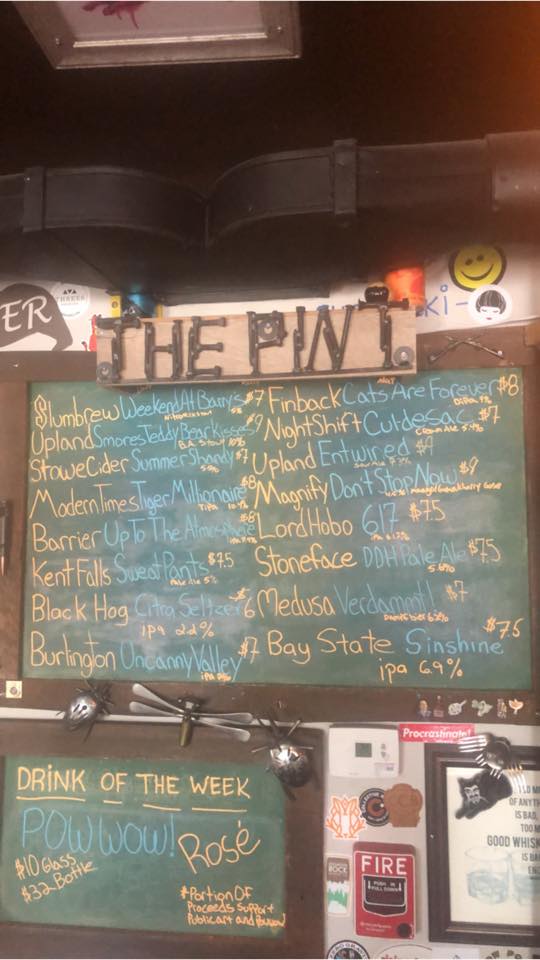 ER
THE PINT
Slumbrew Weekend At Barry's $7
Upland Smores Teddy Bear Kisses $9
B.A. Stout 10%
Stowe Cider Summer Shandy $7
Modern Times Tiger Millionaire $8
Barrier Up To The Atmosphere $8
Kent Falls Sweat Pants $7.5
Pale Ale 5%
Black Hog Citra Seltzer $6
ipa 2.2%
Burlington Uncanny Valley $7
Finback Cats Are Forever $8
Night Shift Cul de sac $7
Cream Ale 5.4%
Upland Entwired $9
Magnify Don't Stop Now $9
Lord Hobo 617 $7.5
Stoneface DDH Pale Ale $7.5
5.6%
Medusa Verdament! $7
Bay State Sinshine $7.5
ipa 6.9%
Procrastinate!
DRINK OF THE WEEK
POW WOW! Rosé
$10 Glass
$32 Bottle
*Portion Of
Proceeds Support
Public art and
FIRE
PUSH IN
PULL DOWN
OF ANYTH
IS BAD,
TOO M
GOOD WHISK
IS BA